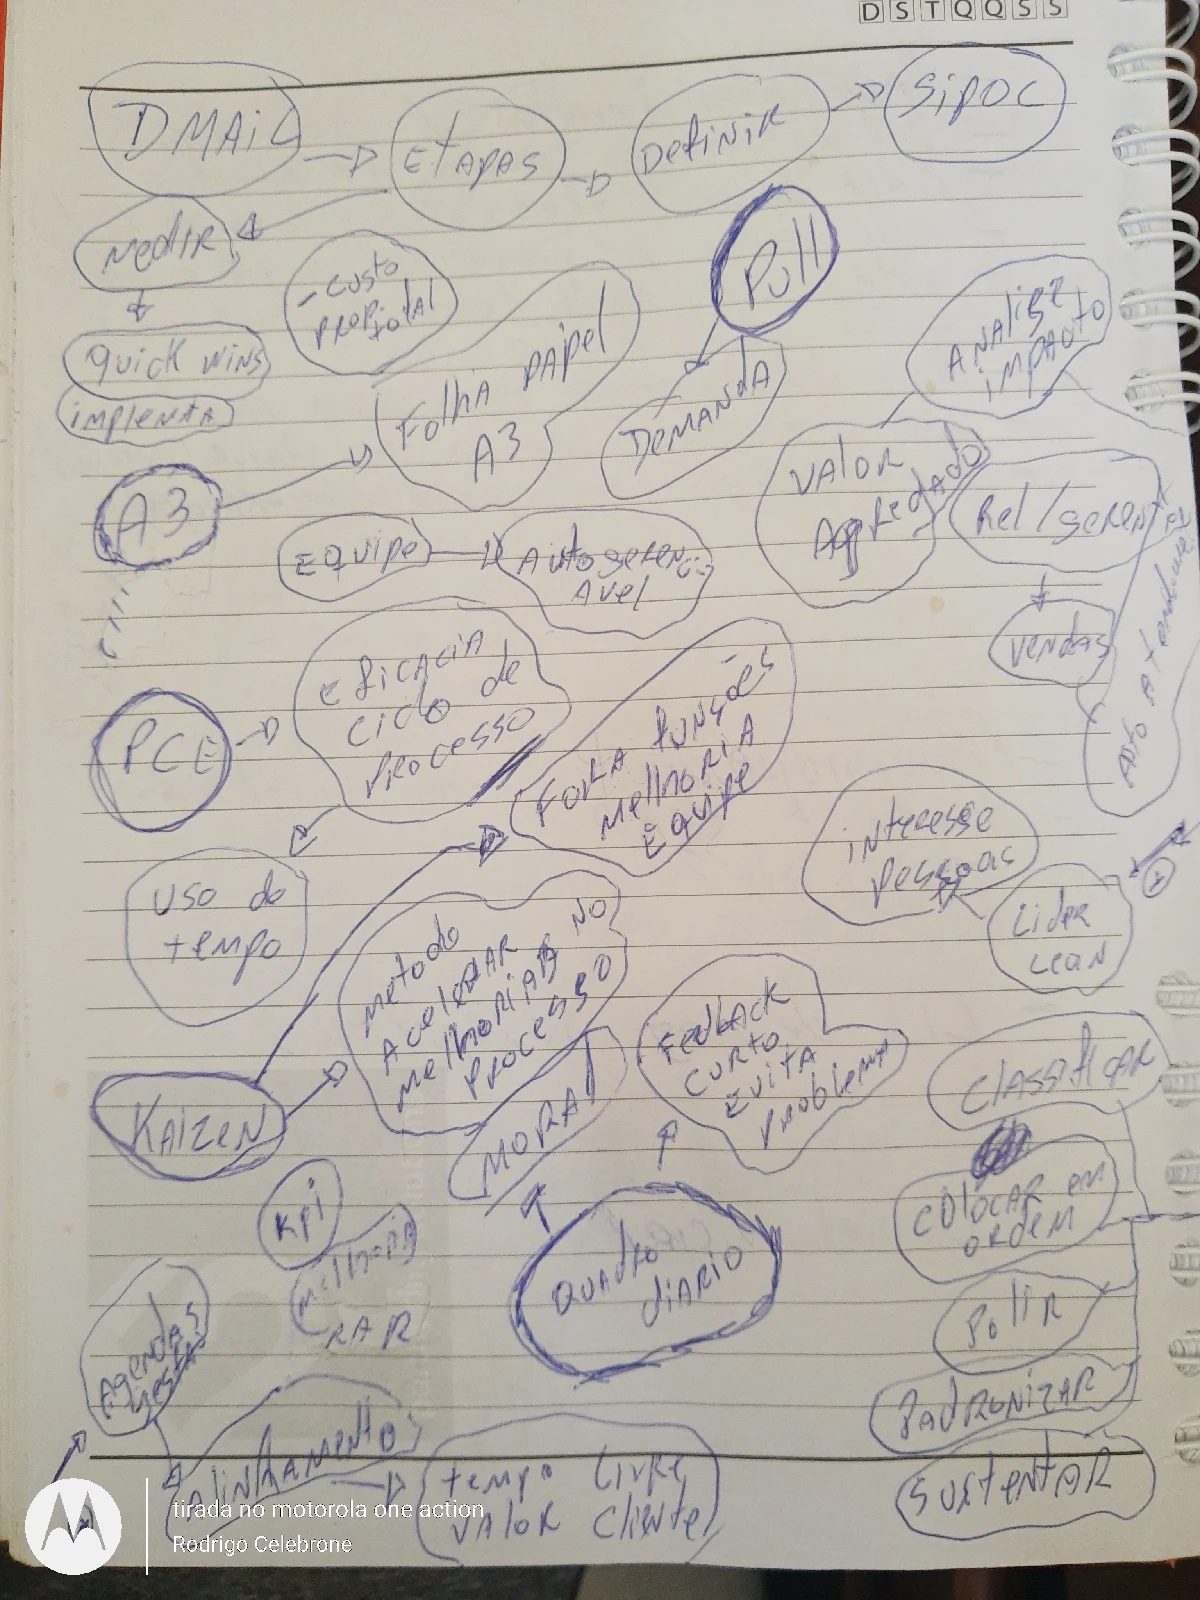 D S T Q Q S S
DMAiC
Etapas
Definir
SiPOC
Medir
- Custo
Total
Pull
quick wins
implenta
Folha papel
A3
DEMANDA
ANALISE
impacto
VALOR
Aggredado
Rel/gerent
A3
Equipe
Autogeren
Avel
vendas
eficacia
ciclo de
processo
PCE
Fora funções
Melhoria
Equipe
Auto A
uso do
tempo
interesse
pessoas
Lider
Lean
Metodo
Acelerar
Melhorias NO
processo
Feedback
curto
EVITA
problema
Kaizen
classificar
KPi
Colocar em
ordem
Quadro
diario
Polir
Agendas
Padronizar
Alinhamento
tempo Livre
VALOR Cliente
Sustentar
tirada no motorola one action
Rodrigo Celebrone